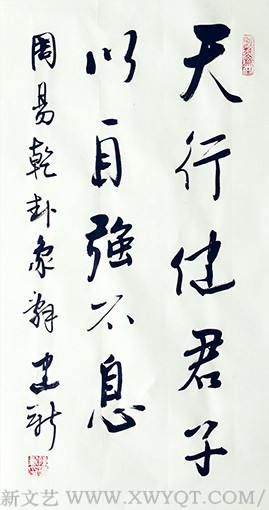 天行健君子
以自強不息
周易乾卦象辞 建新
新文艺 WWW.XWYQT.COM/